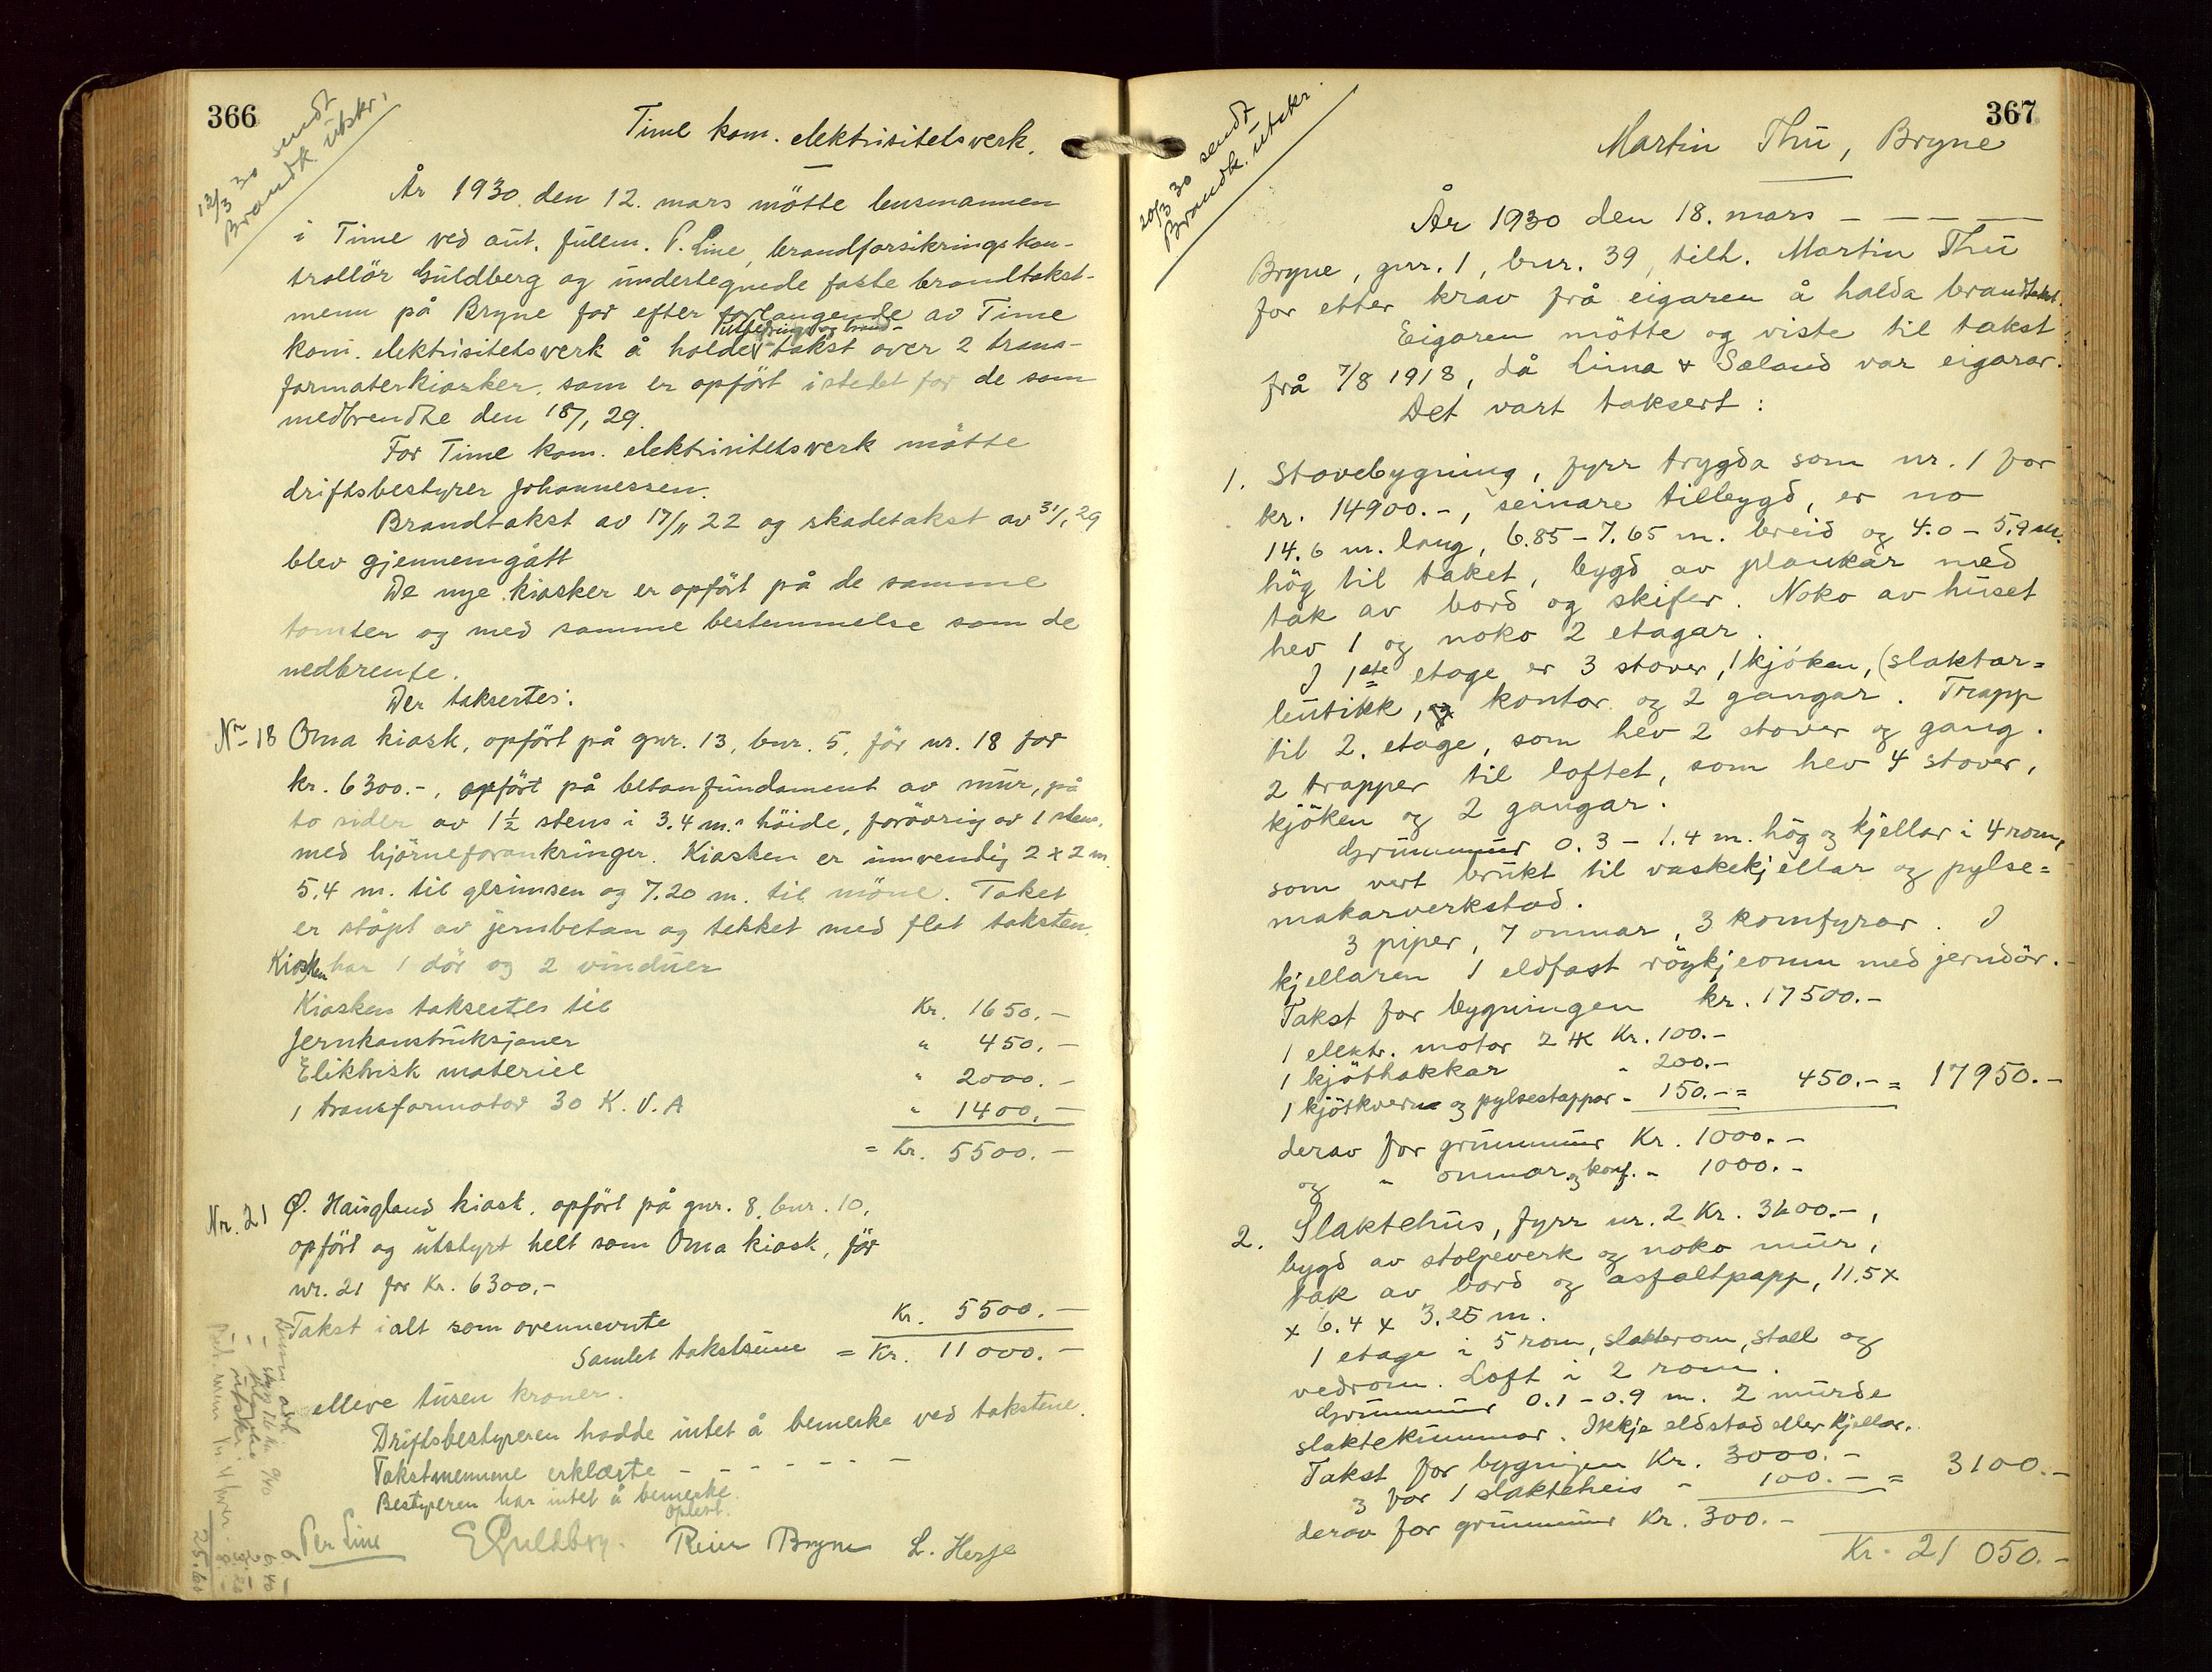 366
12/3 30 sendt
Brandk. utskr.
Time kom. elektrisitetsverk.
År 1930 den 12. mars mötte lensmannen
i Time ved aut. fullm. P. Line, brandforsikringskon-
trollör Guldberg og undertegnede faste brandtakst-
menn på Bryne for efter forlangende av Time
utbedrings og brand-
kom. elektrisitetsverk å holde takst over 2 trans-
formatorkiosker, som er opfört istedet for de som
nedbrendte den 18/1 29.
For Time kom. elektrisitetsverk mötte
driftsbestyrer Johannessen.
Brandtakst av 17/11 22 og skadetakst av 31/1 29
blev gjennemgått
De nye kiosker er opfört på de samme
tomter og med samme bestemmelse som de
nedbrente.
Der taksertes:
Nr. 18 Oma kiosk, opfört på gnr. 13, bnr. 5, för nr. 18 for
kr. 6300.-, opfört på betonfundament av mur, på
to sider av 1½ stens i 3.4 m.s höide, forövrig av 1 stens,
med hjörneforankringer. Kiosken er innvendig 2 x 2 m.
5.4 m. til gesimsen og 7.20 m. til möne. Taket
er stöpt av jernbeton og tekket med flat taksten.
Kiosken har 1 dör og 2 vinduer
Kiosken taksertes til Kr. 1650.-
Jernkonstruksjoner " 450.-
Elektrisk materiel " 2000.-
1 transformator 30 K.V.A " 1400.-
= Kr. 5500.-
Nr. 21 Ø. Haugland kiosk, opfört på gnr. 8, bnr. 10,
opfört og utstyrt helt som Oma kiosk, för
nr. 21 for Kr. 6300.-
Takst ialt som ovennevnte Kr. 5500.-
Samlet takstsum = Kr. 11000.-
elleve tusen kroner.
Driftsbestyreren hadde intet å bemerke ved takstene.
Takstmennene erklærte - - - - - - -
Bestyreren har intet å bemerke.
Oplest.
Per Line E Guldberg. Reier Bryne L. Herje
25.60
367
20/3 30 sendt
Brandk. utskr.
Martin Thu, Bryne
År 1930 den 18. mars - - - -
Bryne, gnr. 1, bnr. 39, tilh. Martin Thu
for etter krav frå eigaren å halda brandtakst.
Eigaren mötte og viste til takst
frå 7/8 1918, då Lima & Sæland var eigarar.
Det vart taksert:
1. Stovebygning, fyrr trygda som nr. 1 for
kr. 14900.-, seinare tilbygd, er no
14.6 m. lang, 6.85 - 7.65 m. breid og 4.0 - 5.9 m.
hög til taket, bygd av plankar med
tak av bord og skifer. Noko av huset
hev 1 og noko 2 etagar.
I 1ste etage er 3 stover, 1 kjöken, (slaktar=
butikk, kontor og 2 gangar. Trapp
til 2. etage, som hev 2 stover og gang.
2 trapper til loftet, som hev 4 stover,
kjöken og 2 gangar.
Grunnmur 0.3 - 1.4 m. hög og kjellar i 4 rom,
som vert brukt til vaskekjellar og pylse=
makarverkstad.
3 piper, 7 omnar, 3 komfyrar. I
kjellaren 1 eldfast röykjeomn med jerndör.
Takst for bygningen kr. 17500.-
1 elektr. motor 2 HK Kr. 100.-
1 kjöthakkar " 200.-
1 kjötkvern og pylsestappar - 150.- = 450.- = 17950.-
derav for grunnmur Kr. 1000.-
og " omnar og komf. - 1000.-
2. Slaktehus, fyrr nr. 2 Kr. 3400.-,
bygd av stolpeverk og noko mur,
tak av bord og asfaltpapp, 11.5 x
x 6.4 x 3.25 m.
1 etage i 5 rom, slakterom, stall og
vedrom. Loft i 2 rom.
Grunnmur 0.1 - 0.9 m. 2 murde
slaktekummar. Ikkje eldstad eller kjellar.
Takst for bygningen Kr. 3000.-
3 for 1 slakteheis - 100.- = 3100.-
derav for grunnmur Kr. 300.-
Kr. 21 050.-